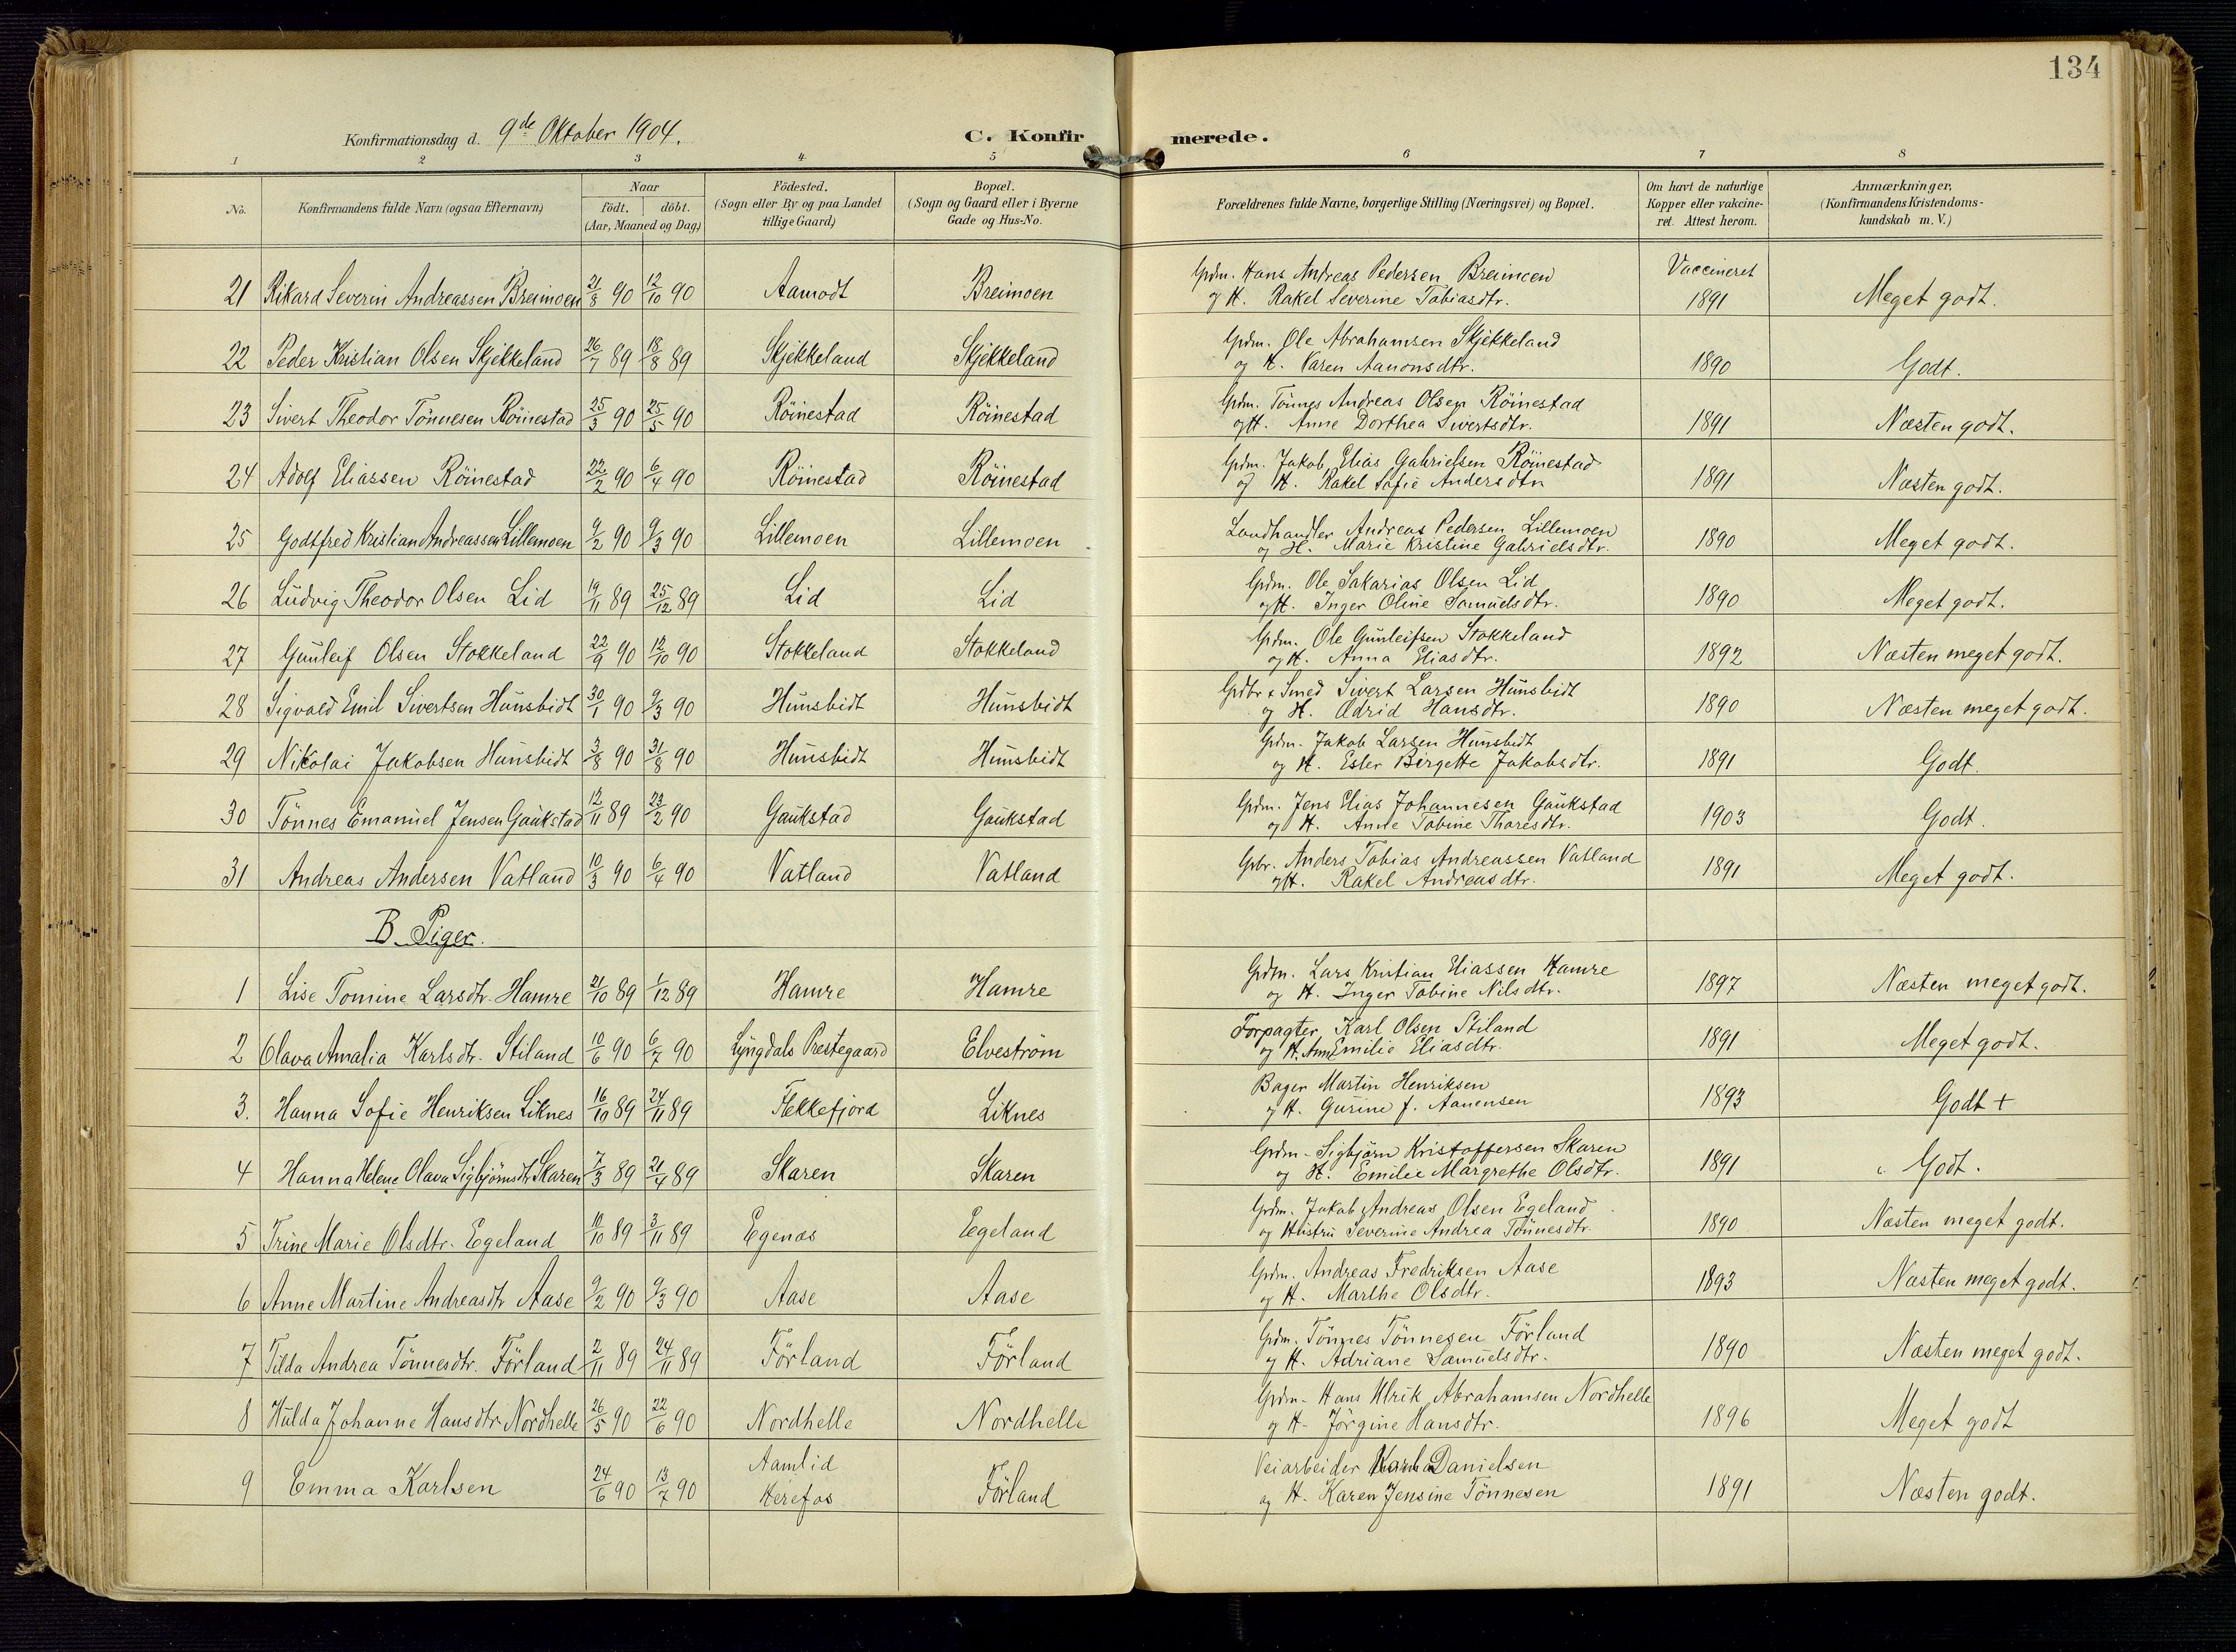 134
Konfirmationsdag d. 9de Oktober 1904.
C. Konfirmerede.
1 2 3 4 5 6 7 8
No.
Konfirmandens fulde Navn (ogsaa Efternavn)
Naar
födt. döbt.
(Aar, Maaned og Dag)
Födested.
(Sogn eller By og paa Landet
tillige Gaard)
Bopæl.
(Sogn og Gaard eller i Byerne
Gade og Hus-No.
Forældrenes fulde Navne, borgerlige Stilling (Næringsvei) og Bopæl.
Om havt de naturlige
Kopper eller vakcine-
ret. Attest herom.
Anmærkninger,
(Konfirmandens Kristendoms-
kundskab m. V.)
21 Rikard Severin Andreassen Breimoen 21/8 90 12/10 90 Aamodt Breimoen Gdm. Hans Andreas Pedersen Breimoen Vaccineret
og H. Rakel Severine Tobiasdtr. 1891 Meget godt.
22 Peder Kristian Olsen Skjekkeland 26/7 89 18/8 89 Skjekkeland Skjekkeland Gdm. Ole Abrahamsen Skjekkeland
og H. Karen Aanonsdtr. 1890 Godt.
23 Sivert Theodor Tönnesen Röinestad 25/3 90 25/5 90 Röinestad Röinestad Gdm. Tönnes Andreas Olsen Röinestad
og H. Anne Dorthea Sivertsdtr. 1891 Næsten godt.
24 Adolf Eliassen Röinestad 22/2 90 6/4 90 Röinestad Röinestad Gdm. Jakob Elias Gabrielsen Röinestad
og H. Rakel Sofie Andersdtr 1891 Næsten godt.
25 Godtfred Kristian Andreassen Lillemoen 9/2 90 9/3 90 Lillemoen Lillemoen Landhandler Andreas Pedersen Lillemoen
og H. Marie Kristine Gabrielsdtr. 1890 Meget godt.
26 Ludvig Theodor Olsen Lid 19/11 89 25/12 89 Lid Lid Gdm. Ole Sakarias Olsen Lid
og H. Inger Oline Samuelsdtr. 1890 Meget godt.
27 Gunleif Olsen Stokkeland 22/9 90 12/10 90 Stokkeland Stokkeland Gdm. Ole Gunleifsen Stokkeland
og H. Anna Eliasdtr. 1892 Næsten meget godt.
28 Sigvald Emil Sivertsen Hunsbidt 30/1 90 9/3 90 Hunsbidt Hunsbidt Gdbr & Smed Sivert Larsen Hunsbidt
og H. Odrid Hansdtr. 1890 Næsten meget godt.
29 Nikolai Jakobsen Hunsbidt 3/8 90 31/8 90 Hunsbidt Hunsbidt Gdm. Jakob Larsen Hunsbidt
og H. Ester Birgette Jakobsdtr. 1891 Godt.
30 Tönnes Emanuel Jensen Gaukstad 12/11 89 23/2 90 Gaukstad Gaukstad Gdm. Jens Elias Johannesen Gaukstad
og H. Anne Tobine Tharesdtr. 1903 Godt.
31 Andreas Andersen Vatland 10/3 90 6/4 90 Vatland Vatland Gbr. Anders Tobias Andreassen Vatland
og H. Rakel Andreasdtr. 1891 Meget godt.
B. Piger.
1 Lise Tomine Larsdtr. Hamre 21/10 89 1/12 89 Hamre Hamre Gdm. Lars Kristian Eliassen Hamre
og H. Inger Tobine Nilsdtr. 1897 Næsten meget godt.
2 Olava Amalia Karlsdtr. Stiland 10/6 90 6/7 90 Lyngdals Prestegaard Elveström Forpagter Karl Olsen Stiland
og H. Ann Emilie Eliasdtr. 1891 Meget godt.
3. Hanna Sofie Henriksen Liknes 16/10 89 24/11 89 Flekkefjord Liknes Bager Martin Henriksen
og H. Gurine f. Aanensen 1893 Godt +
4 Hanna Helene Olava Sigbjörnsdtr Skaren 7/3 89 21/4 89 Skaren Skaren Gdm. Sigbjörn Kristoffersen Skaren
og H. Emilie Margrethe Olsdtr. 1891 Godt.
5 Trine Marie Olsdtr. Egeland 10/10 89 3/11 89 Egenæs Egeland Gdm. Jakob Andreas Olsen Egeland
og Hustru Severine Andrea Tönnesdtr. 1890 Næsten meget godt.
6 Anne Martine Andreasdtr Aase 9/2 90 9/3 90 Aase Aase Gdm. Andreas Fredriksen Aase
og H. Marthe Olsdtr. 1893 Næsten meget godt.
7 Tilda Andrea Tönnesdtr. Förland 2/11 89 24/11 89 Förland Förland Gdm. Tönnes Tönnesen Förland
og H. Adriane Samuelsdtr. 1890 Næsten meget godt.
8 Hulda Johanne Hansdtr Nordhelle 26/5 90 22/6 90 Nordhelle Nordhelle Gdm. Hans Ulrik Abrahamsen Nordhelle
og H. Jörgine Hansdtr. 1896 Meget godt
9 Emma Karlsen 24/6 90 13/7 90 Aamlid Förland Veiarbeider Danielsen
Herefos og H. Karen Jensine Tönnesen 1891 Næsten godt.